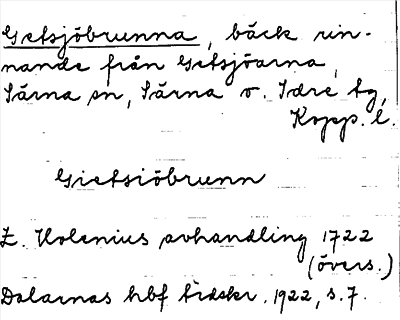 Getsjöbrunna, bäck rin-
nande från Getsjöarna,
Särna sn, Särna o. Idre tg,
Kopp. l.
Gietsiöbrunn
Z. Holenius avhandling 1722
(övers.)
Dalarnas hbf tidskr. 1922, s. 7.